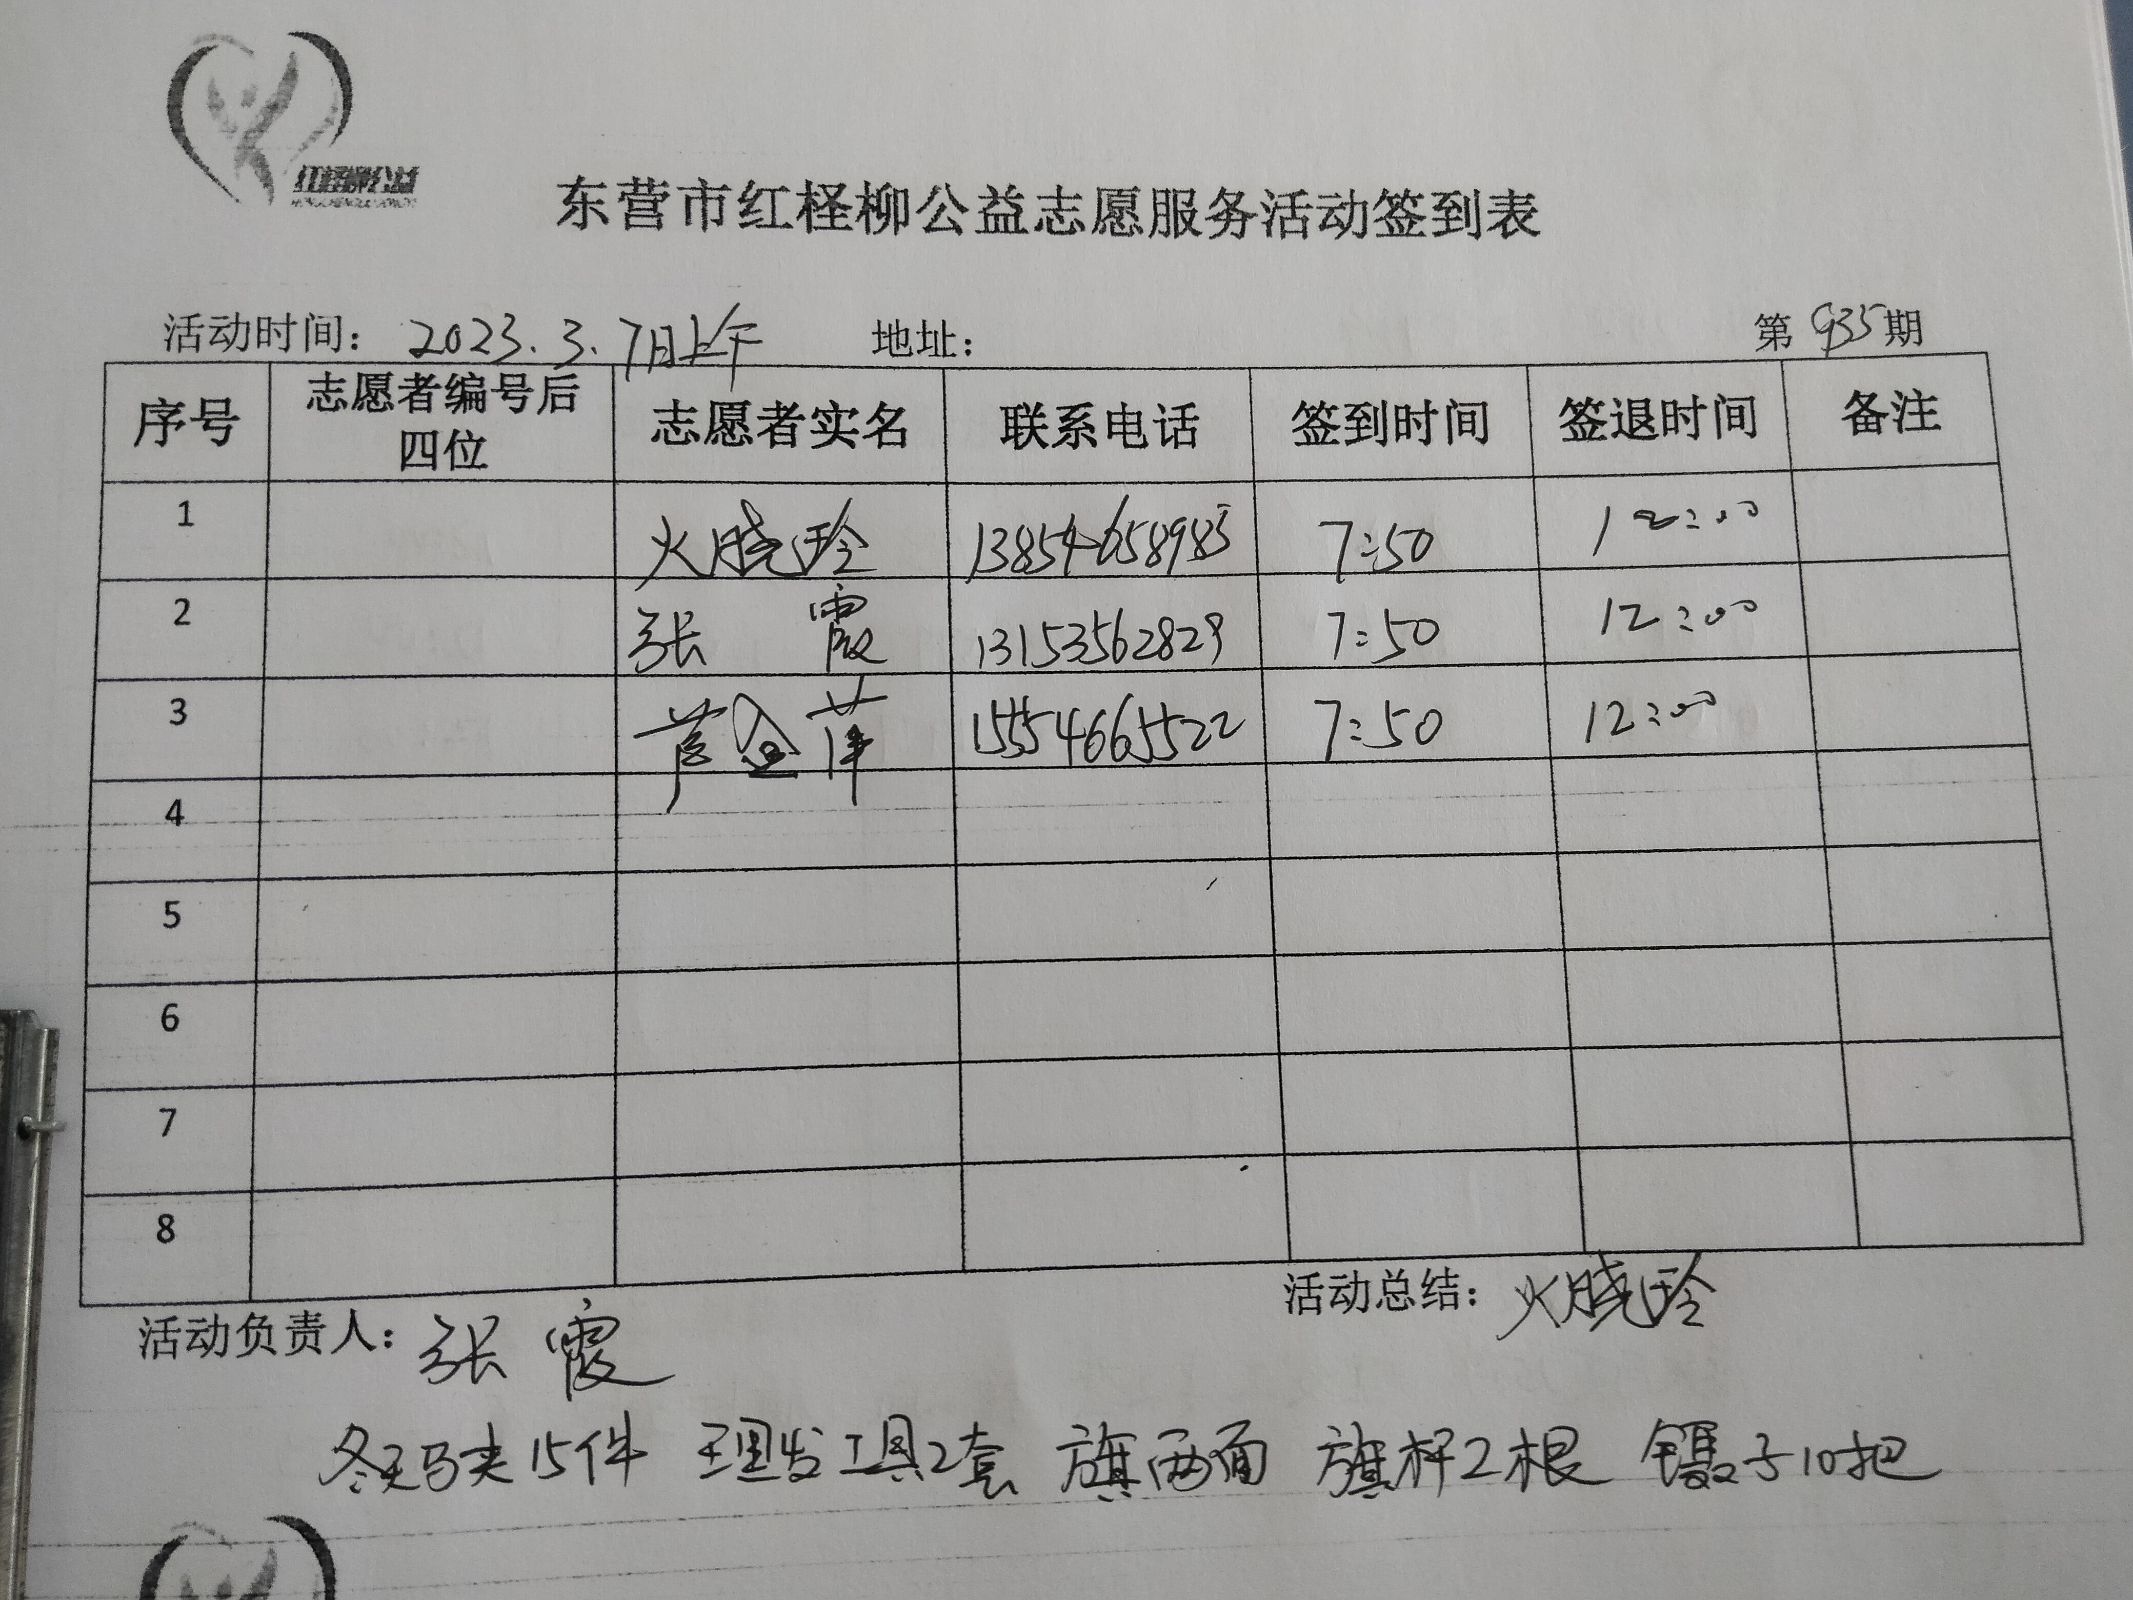 红柽柳公益
东营市红柽柳公益志愿服务活动签到表
活动时间： 2023.3.7日上午 地址： 第935期
序号 志愿者编号后四位 志愿者实名 联系电话 签到时间 签退时间 备注
1 火晓玲 13854658985 7:50 12:00
2 张霞 13153562829 7:50 12:00
3 15554665522 7:50 12:00
4
5
6
7
8
活动负责人：张霞 活动总结：火晓玲
冬天马夹15件 理发工具2套 旗两面 旗杆2根 镊子10把